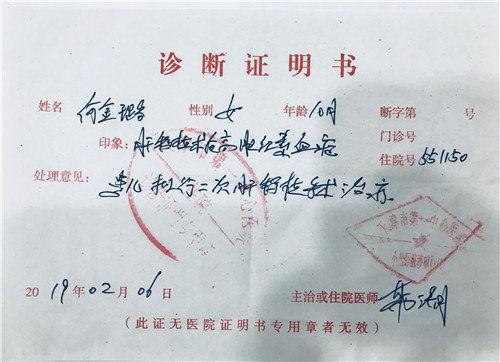 诊断证明书
姓名 何金璐 性别 女 年龄 10月 断字第 号
印象: 肝移植术后高胆红素血症 门诊号
住院号 551150
处理意见: 患儿拟行二次肝移植手术治疗
天津市第一中心医院
2019年02月06日 主治或住院医师
(此证无医院证明书专用章者无效)